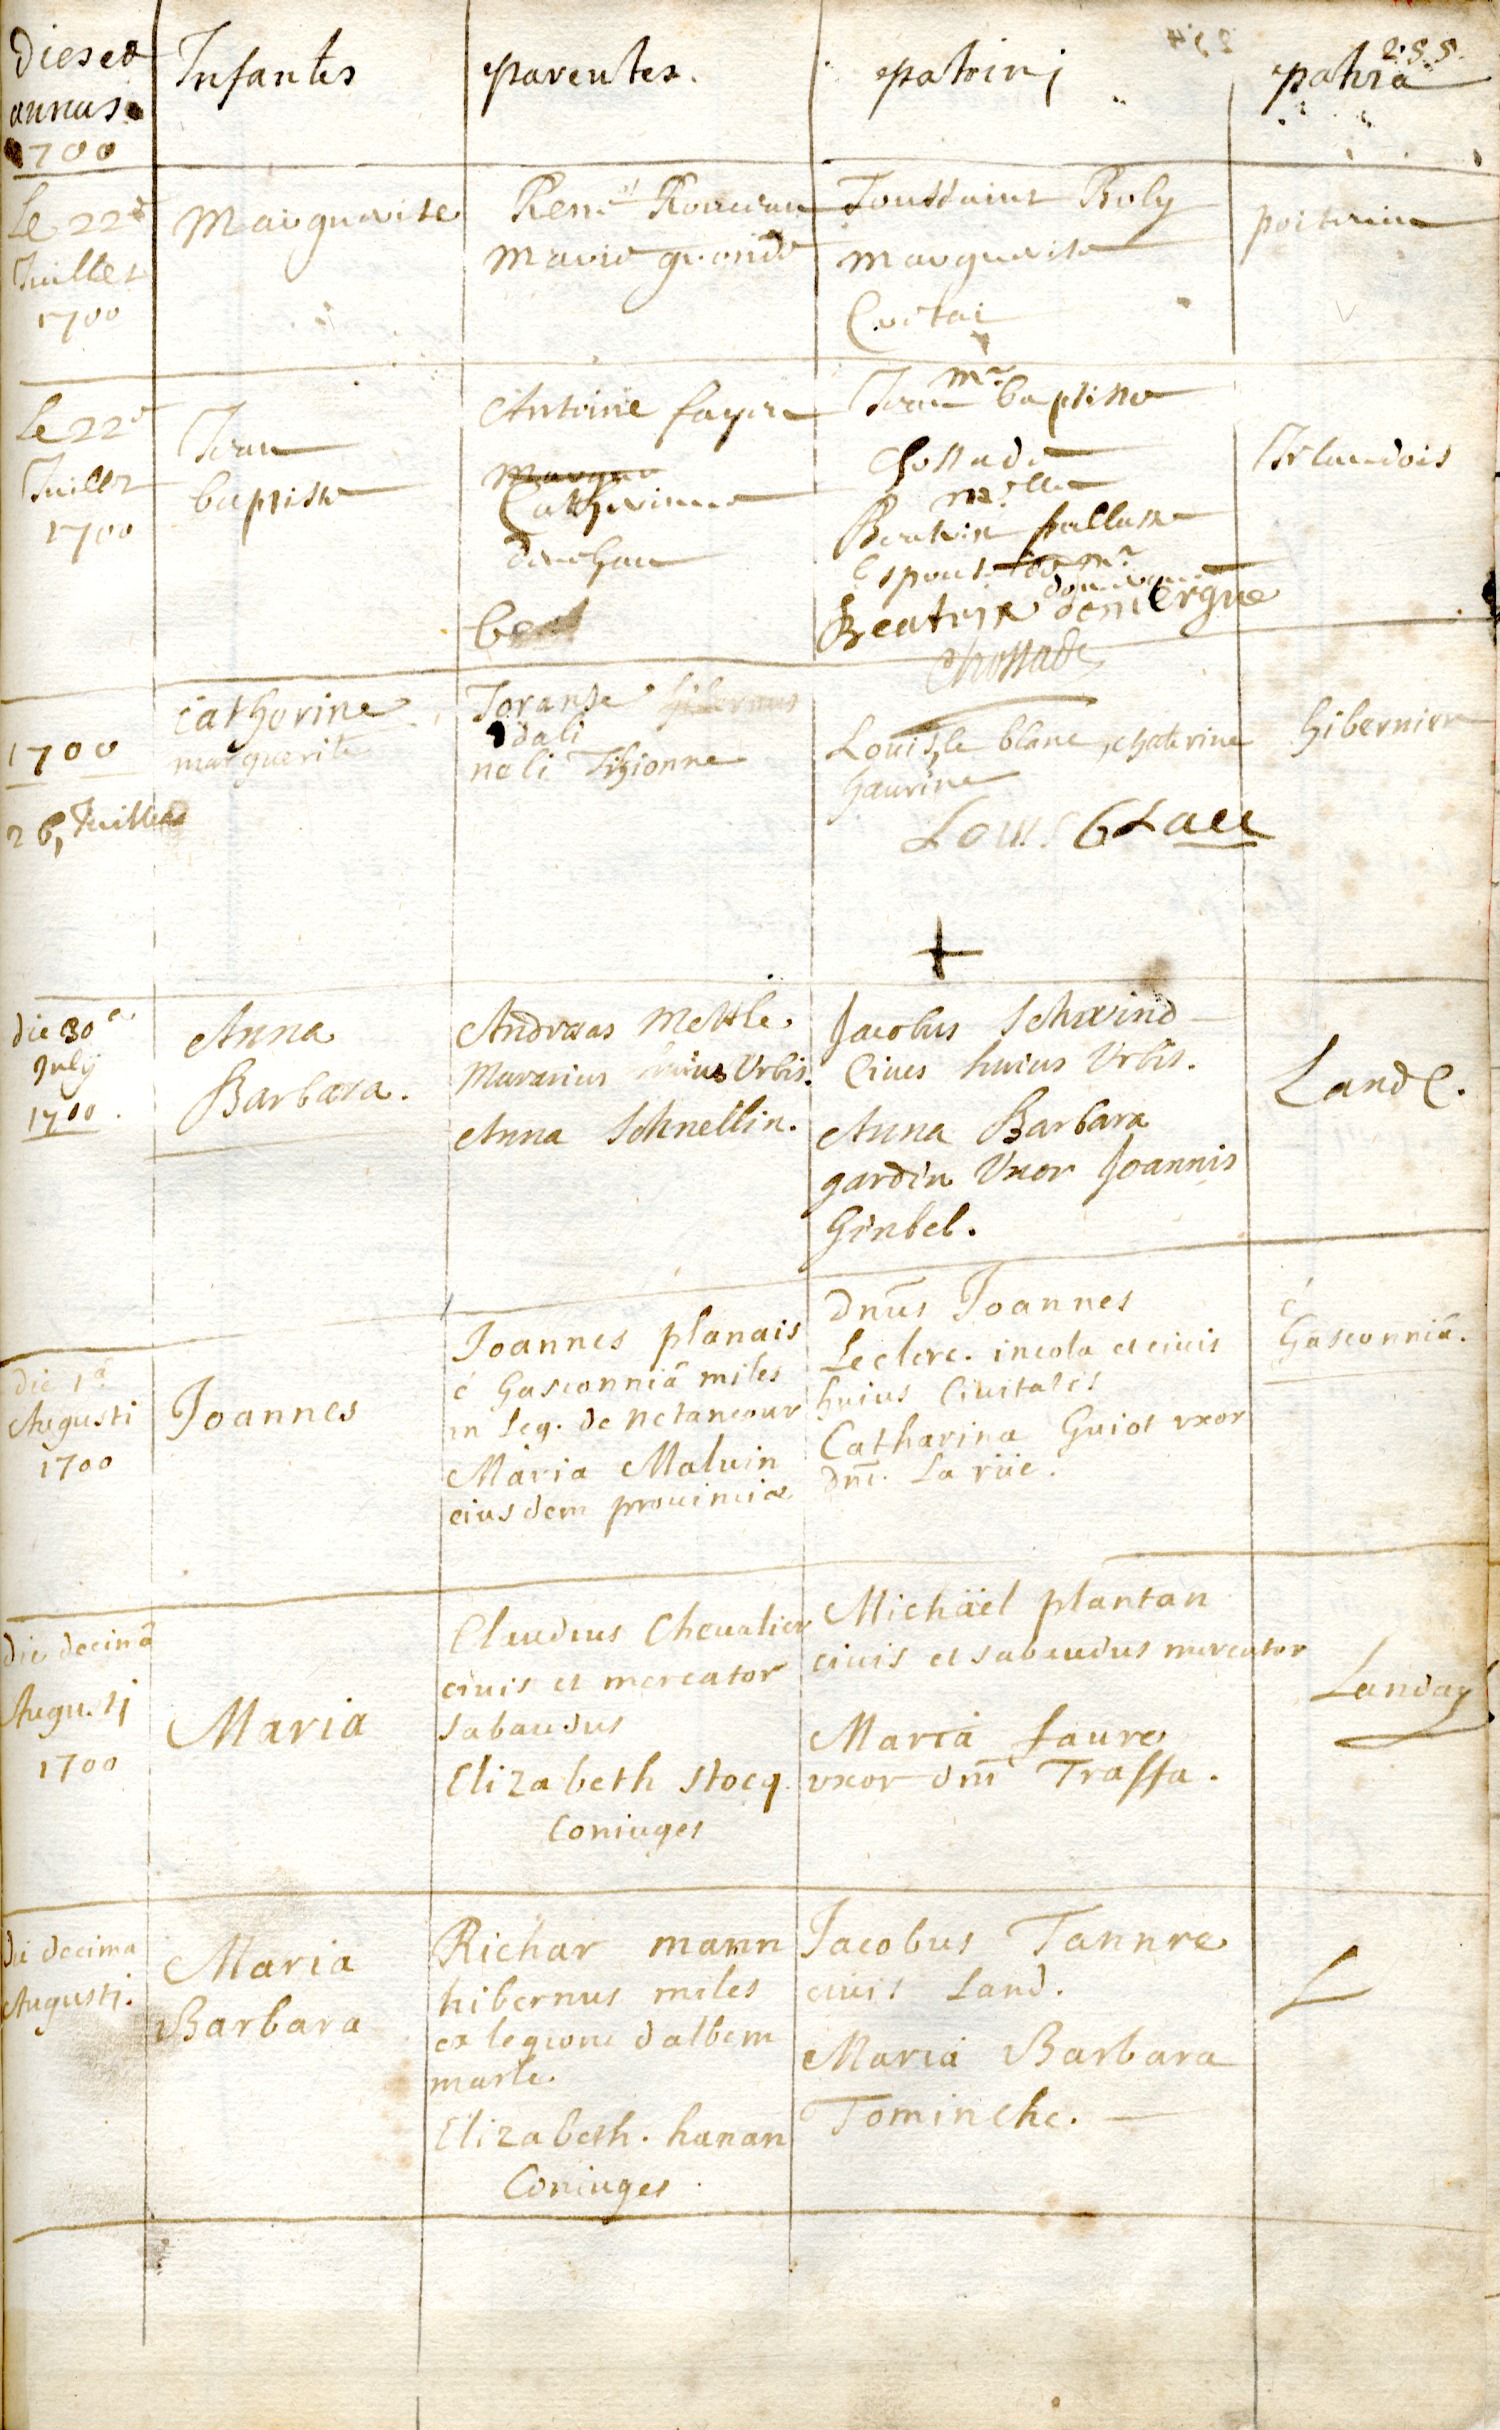 255.
Dies et Infantes parentes. patrinj patria
annus
1700
Le 22e
Juillet
1700
Marguerite
René
Marie
Toussaint Boly
marguerite
poitevine
Le 22e
Juillet
1700
Jean
baptiste
Antoine
Catherine
be
mr
Jean baptiste
Chossade
melle
Espouse de mr
Beatrix
Chossade
Irlandois
1700
26, Juillet
catherine
marguerite
hibernus
dali
neli
Louis le blanc, chaterine
haurine
Louis bLanc
+
hibernien
die 30a
July
1700.
Anna
Barbara.
Andreas Mettle.
Murarius huius Urbis.
Anna Schnellin.
Jacobus Schwind
Civis huius Urbis.
Anna Barbara
gardin Uxor Joannis
Ginbel.
Land C.
die 1a
Augusti
1700
Joannes
Joannes planais
é Gasconniâ miles
in leg. de Netancour
Maria Maluin
eiusdem prouinciæ
dnūs Joannes
Leclerc. incola et ciuis
huius Ciuitatis
Catharina Guiot uxor
dnī. La rüe.
é
Gasconniâ.
die decimâ
Augustj
1700
Maria
Claudius Cheualier
ciuis et mercator
sabaudus
Elizabeth stocq.
Coniuges
Michäel plantan
ciuis et sabaudus mercator
Maria faure
uxor dnī Traffa.
Landay
die decima
Augustj.
Maria
Barbara
Richar mann
hibernus miles
ex legione dalbem
marle.
Elizabeth. hanan
Coniuges
Jacobus Tannre
ciuis Land.
Maria Barbara
Tominche.
L